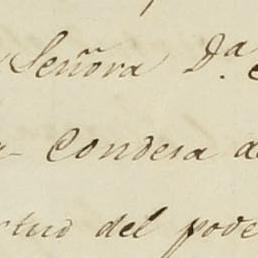 Señora D.a
Condesa de
rtud del pode